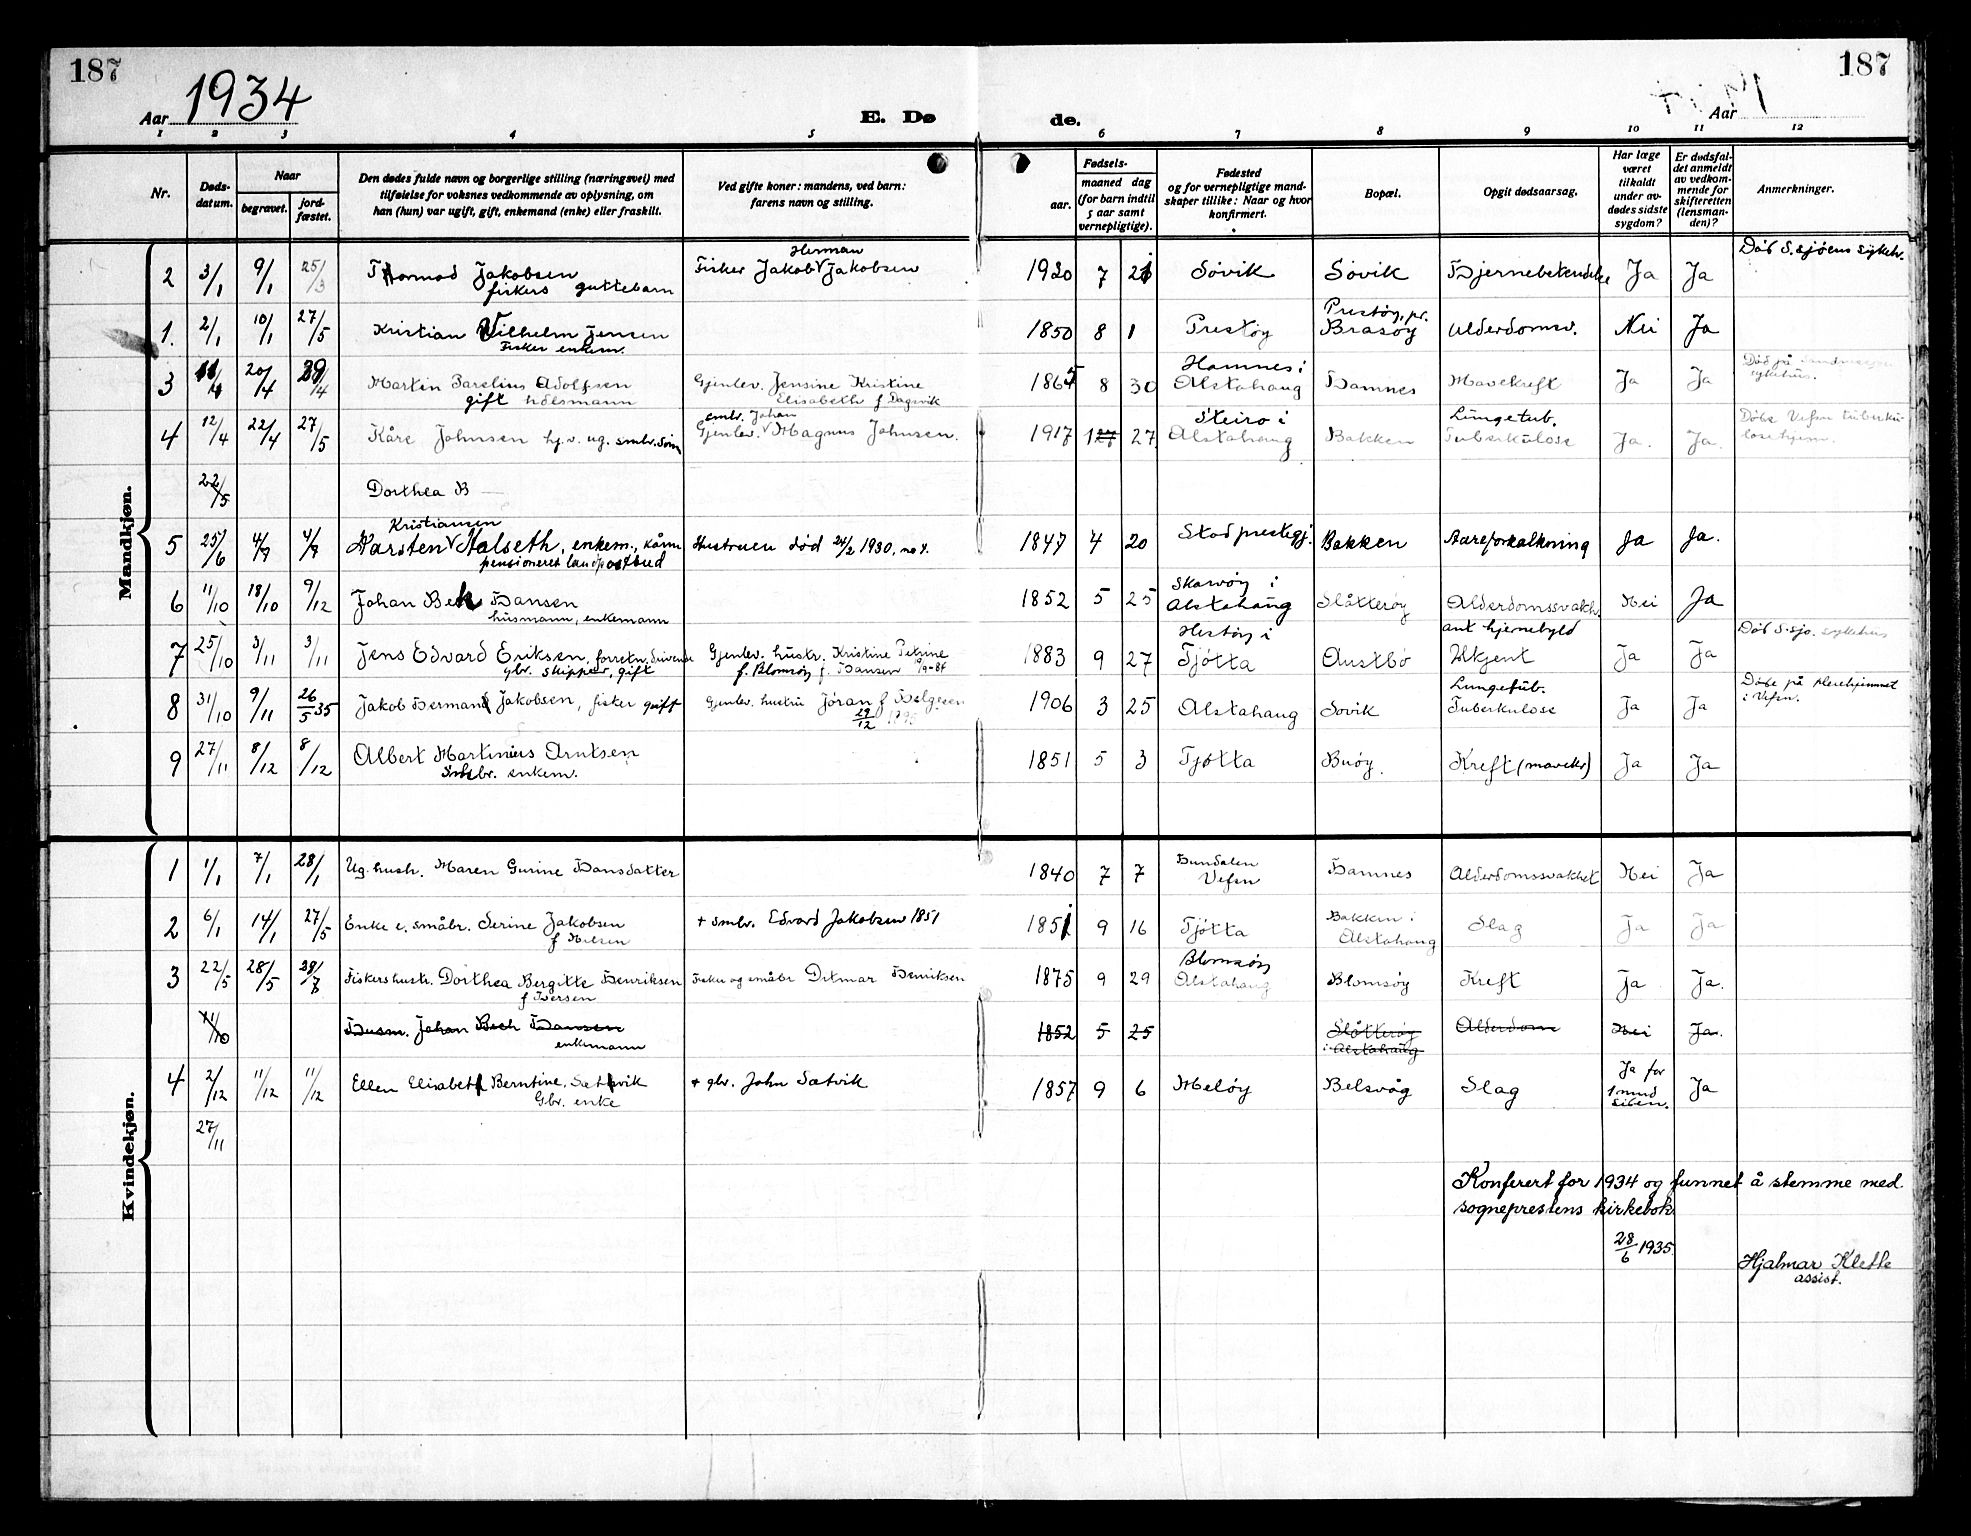 187
187
Aar 1934
E. Dø
de.
Aar
1 2 3 4 5 6 7 8 9 10 11 12
Nr.
Døds-
datum.
Naar
begravet.
jord-
fæstet.
Den dødes fulde navn og borgerlige stilling (næringsvei) med
tilføielse for voksnes vedkommende av oplysning, om
han (hun) var ugift, gift, enkemand (enke) eller fraskilt.
Ved gifte koner: mandens, ved barn:
farens navn og stilling.
Fødsels-
aar.
maaned dag
(for barn indtil
5 aar samt
vernepligtige).
Fødested
og for vernepligtige mand-
skaper tillike: Naar og hvor
konfirmert.
Bopæl.
Opgit dødsaarsag.
Har læge
været
tilkaldt
under av-
dødes sidste
sygdom?
Er dødsfal-
det anmeldt
av vedkom-
mende for
skifteretten
(lensman-
den)?
Anmerkninger.
Mandkjøn.
Herman
Død S.sjøens sykeh.
2 3/1 9/1 25/3 Thormod Jakobsen Fisker Jakob Jakobsen 1920 7 21 Søvik Søvik Hjernebetendelse Ja Ja
fiskers guttebarn
Prestøy, pr.
1. 2/1 10/1 27/5 Kristian Vilhelm Jensen 1850 8 1 Prestøy Brasøy Alderdomsv. Nei Ja
Fisker enkem.
Hamnes i
Død på Sandnessjøen
sykehus.
3 11/4 20/4 29/4 Martin Parelius Adolfsen Gjenlev. Jensine Kristine 1865 8 30 Alstahaug Hamnes Mavekreft Ja Ja
gift husmann Elisabeth f Dagsvik
smbr. Johan
Steiro i
Lungetub.
Døde Vefsn tuberku-
losehjem.
4 12/4 22/4 27/5 Kåre Johnsen hj.v. ug. smbr.sønn Gjenlev. Magnus Johnsen. 1917 127 27 Alstahaug Bakken Tuberkulose Ja. Ja.
22/5 Dorthea B
Kristiansen
5 25/6 4/7 4/7 Karsten Halseth, enkem., kårm Hustruen død 24/2 1930, no 4. 1847 4 20 Stod prestegj. Bakken Aareforkalkning Ja Ja.
pensioneret landpostbud
Skarvøy i
6 11/10 18/10 9/12 Johan Bek Hansen 1852 5 25 Alstahaug Slåtterøy Alderdomssvakh. Nei Ja
husmann, enkemann
Hestøy i
ant hjernebyld
Død S.sjo. sykehus
7 25/10 3/11 3/11 Jens Edvard Eriksen, forretn.drivende Gjenlev. hustr. Kristine Petrine 1883 9 27 Tjøtta Austbø Ukjent Ja Ja
gbr. skipper, gift f. Blomsøy f. Hansen 10/9-84
Lungetub.
Døde på pleiehjemmet
i Vefsn.
8 31/10 9/11 26/5 35 Jakob Herman Jakobsen, fisker gift Gjenlev. hustru Jøran f Helgesen 1906 3 25 Alstahaug Søvik Tuberkulose Ja Ja
29/12
9 27/11 8/12 8/12 Albert Martinius Arntsen 1851 5 3 Tjøtta Buøy. Kreft (mavekr) Ja Ja
Smbr. enkem.
Kvindekjøn.
Hundalen
1 1/1 7/1 28/1 Ug. hush. Maren Gurine Hansdatter 1840 7 7 Vefsn Hamnes Alderdomssvakhet Nei Ja
Bakken i
2 6/1 14/1 27/5 Enke e. småbr. Serine Jakobsen + smbr. Edvard Jakobsen 1851 1851 9 16 Tjøtta Alstahaug Slag Ja Ja
f Nilsen
Blomsøy
3 22/5 28/5 29/7 Fiskershustr. Dorthea Bergitte Henriksen Fisker og småbr Ditmar Henriksen 1875 9 29 Alstahaug Blomsøy Kreft Ja Ja.
f Iversen
11/10 Husm. Johan Bech Hansen 1852 5 25 Slåtterøy Alderdom Nei Ja.
enkemann i Alstahaug
4 2/12 11/12 11/12 Ellen Elisabeth Berntine Sætvik + gbr. John Sætvik 1857 9 6 Meløy Belsvåg Slag Ja for 1 mnd siden. Ja
Gbr. enke
27/11
Konferert for 1934 og funnet å stemme med
sogneprestens kirkebok
28/6 1935.
Hjalmar Klette
assist.